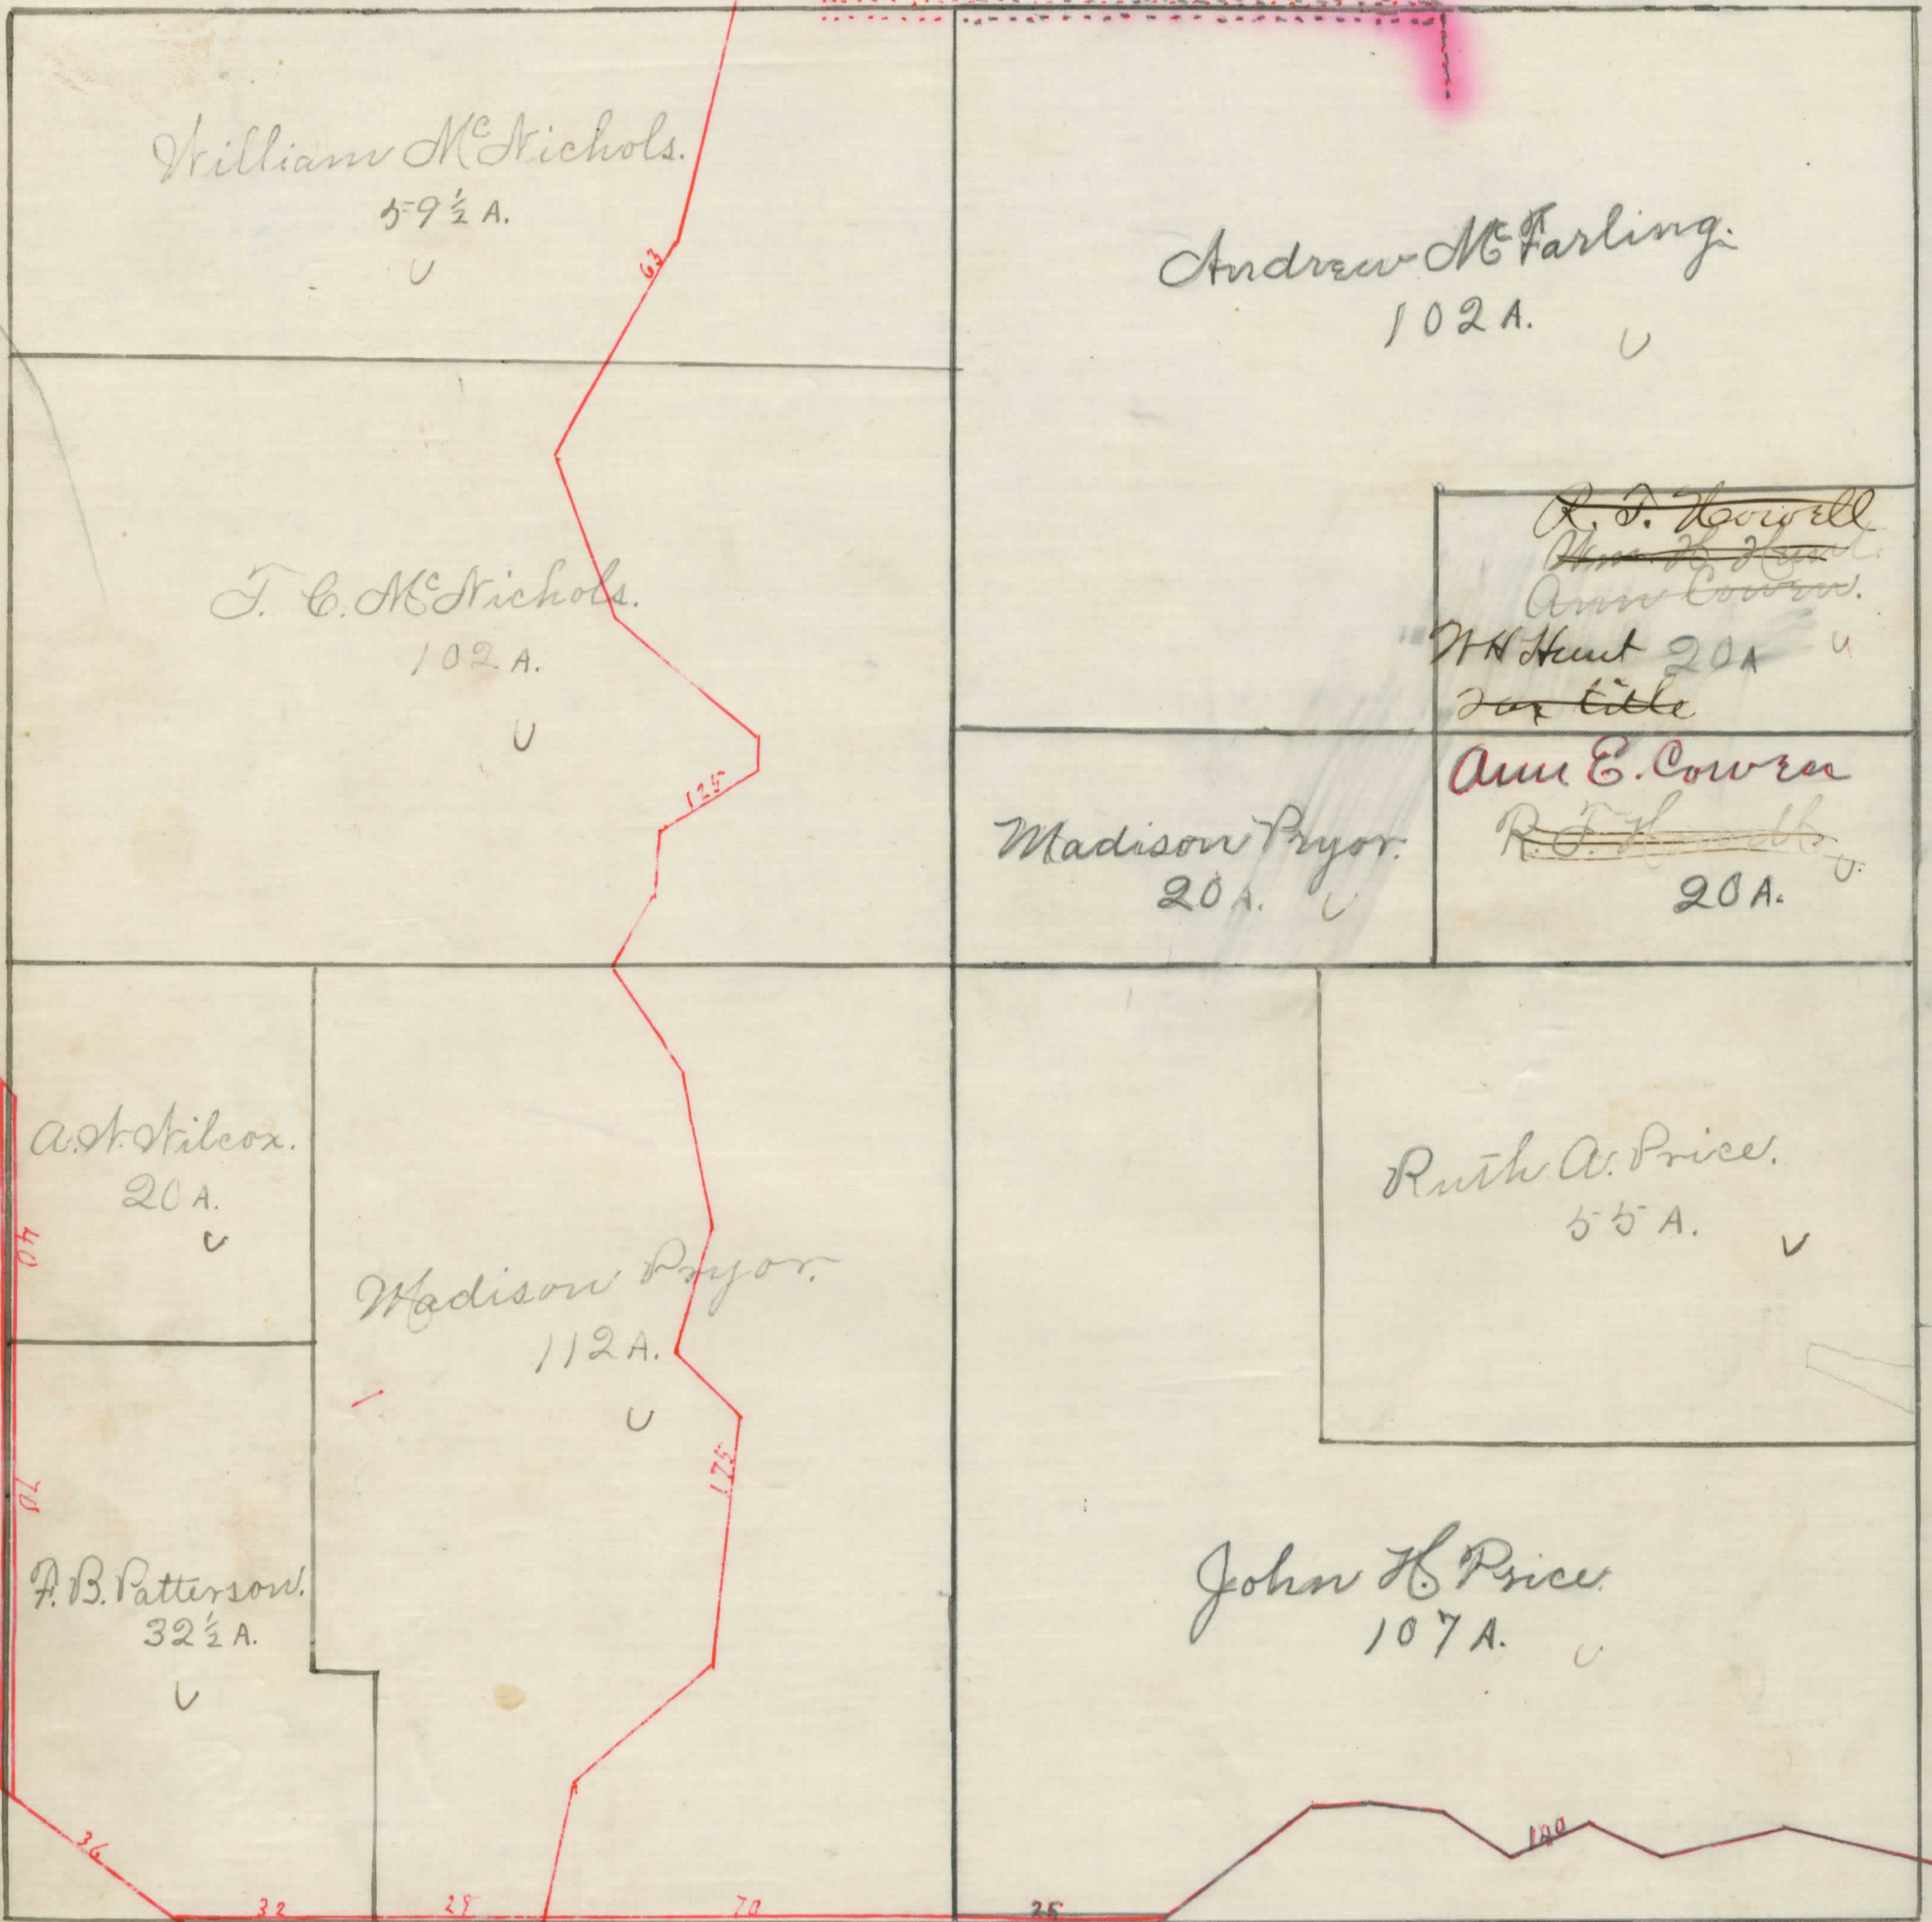 William McNichols.
59½ A.
63
Andrew McFarling.
102 A.
T. C. McNichols.
102 A.
125
R. T. Howell
Wm. H. Hunt.
Ann Cowen.
W H Hunt 20 A
Tax title
Madison Pryor.
20 A.
Ann E. Cowen
R. T.
20 A.
A. W. Wilcox.
20 A.
40
Madison Pryor.
112 A.
175
Ruth A. Price.
55 A.
70
F. B. Patterson.
32½ A.
John H. Price.
107 A.
36
32
70